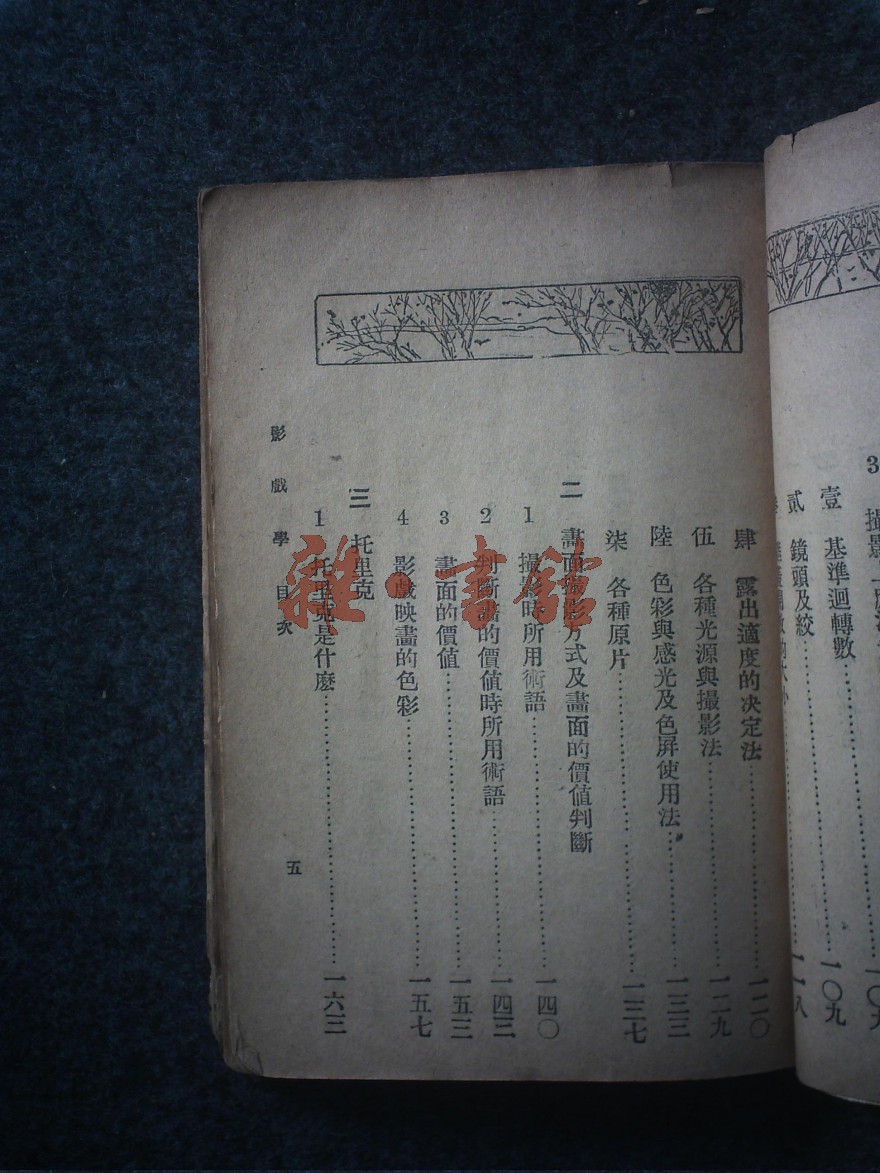 3 撮影
壹 基準迴轉數……一〇九
貳 鏡頭及絞……一一八
肆 露出適度的決定法……一二〇
伍 各種光源與撮影法……一二九
陸 色彩與感光及色屏使用法……一三三
柒 各種原片……一三七
二 畫面撮影方式及畫面的價值判斷
1 撮影時所用術語……一四〇
2 判斷畫的價值時所用術語……一四三
3 畫面的價值……一五三
4 影戲映畫的色彩……一五七
三 托里克
1 托里克是什麽……一六三
影戲學 目次
五
雜·書館